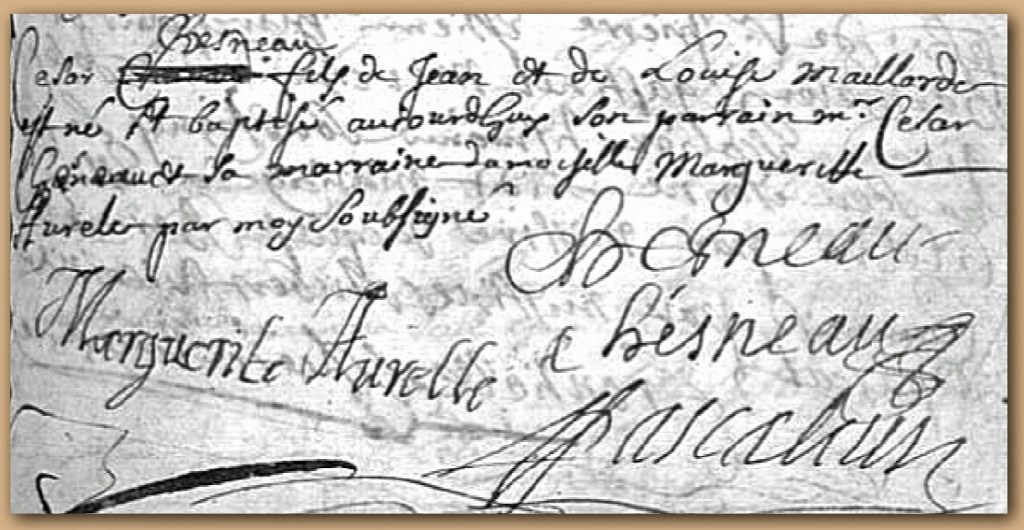 Chesneau
Cesar fils de Jean et de Louise Maillarde
est né Et baptisé aujourdhuy son parrain mr. Cesar
Chéneau et sa marraine damoiselle Margueritte
Aurele par moy Soubsigné
Chesneau
Marguerite Aurelle
Chésneau